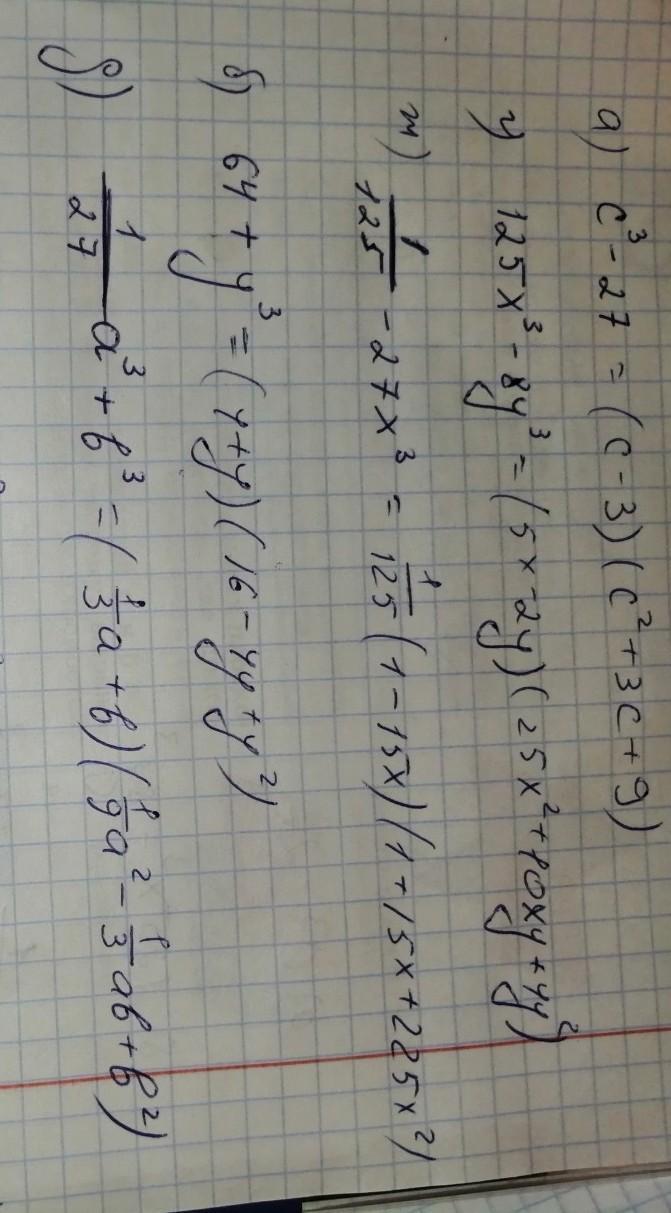 а) c³ - 27 = (c - 3)(c² + 3c + 9)
у) 125x³ - 8y³ = (5x - 2y)(25x² + 10xy + 4y²)
т) 1/125 - 27x³ = 1/125 (1 - 15x)(1 + 15x + 225x²)
б) 64 + y³ = (4 + y)(16 - 4y + y²)
д) 1/27 a³ + b³ = (1/3 a + b)(1/9 a² - 1/3 ab + b²)